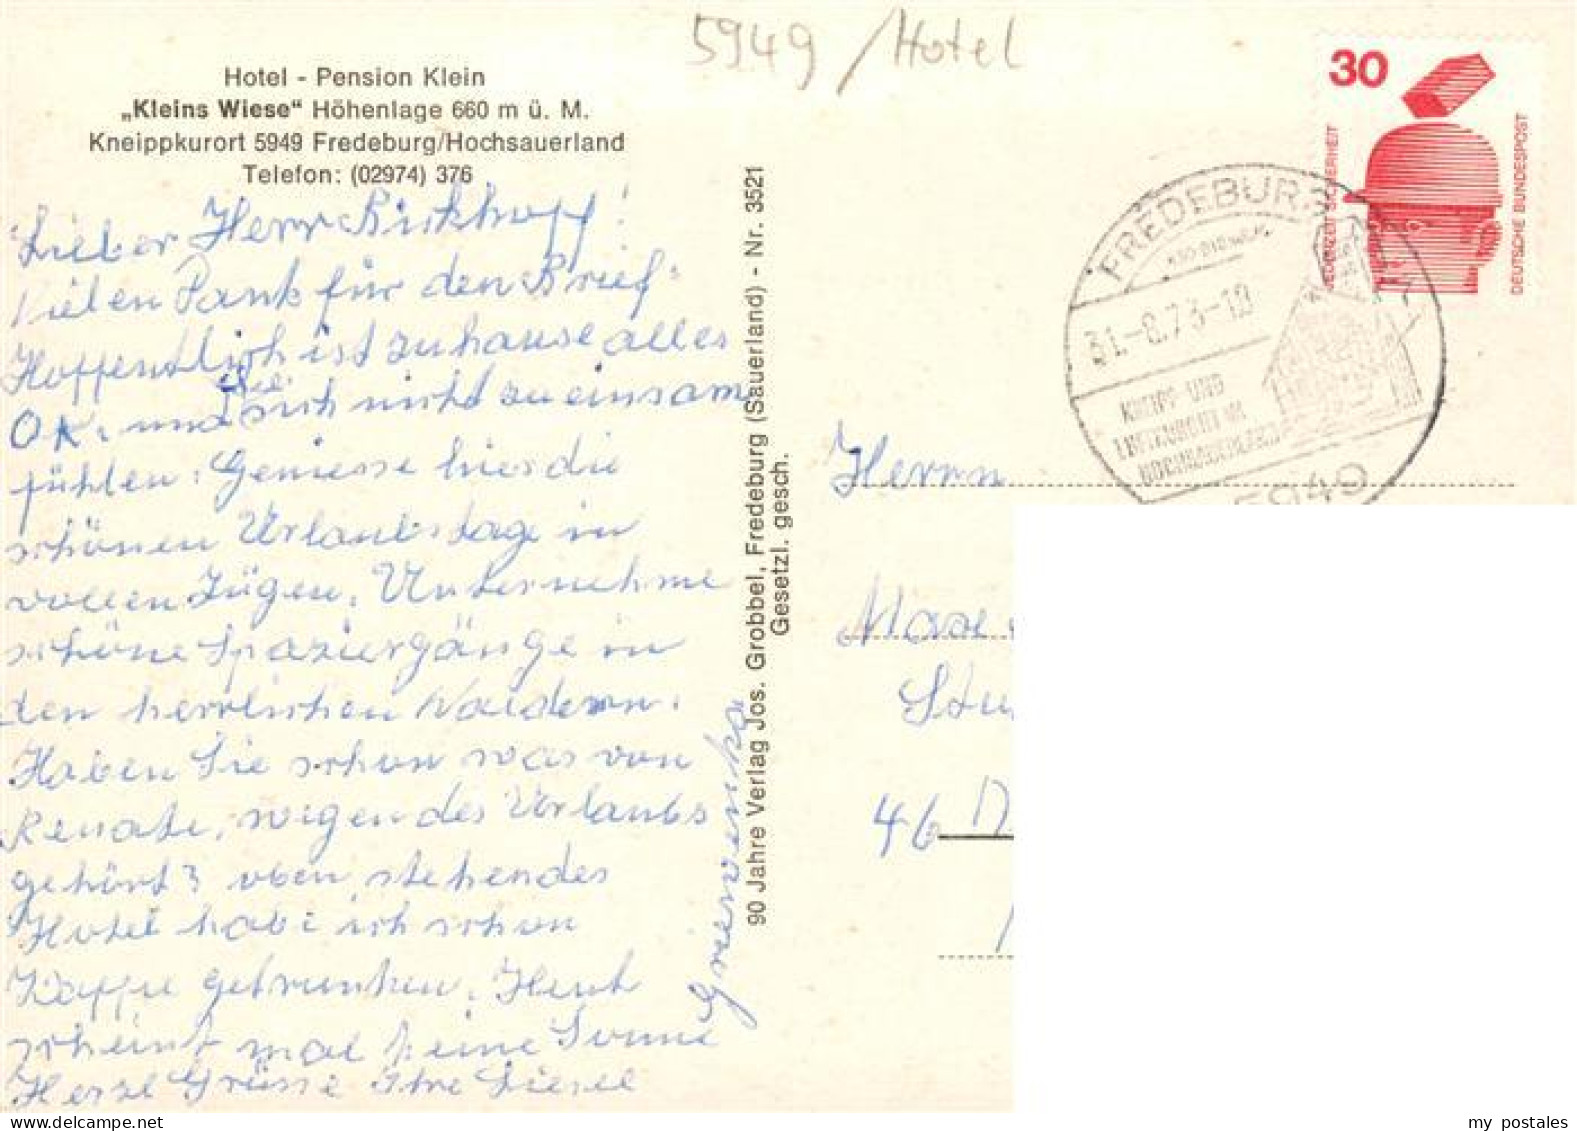 5949 / Hotel
Hotel - Pension Klein
„Kleins Wiese" Höhenlage 660 m ü. M.
Kneippkurort 5949 Fredeburg/Hochsauerland
Telefon: (02974) 376
Lieber Herr Birkhoff!
Vielen Dank für den Brief.
Hoffentlich ist zuhause alles
OK. und Sie sich nicht zu einsam
fühlen. Geniesse hier die
schönen Urlaubstage in
vollen Zügen. Unternehme
schöne Spaziergänge in
den herrlichen Wäldern.
Haben Sie schon was von
Renate, wegen des Urlaubs
gehört? oben stehendes
Hotel habe ich schon
Kaffee getrunken. Heut
scheint mal keine Sonne
Herzl Grüsse Ihre Liesel
90 Jahre Verlag Jos. Grobbel, Fredeburg (Sauerland) - Nr. 3521
Gesetzl. gesch.
30
JEDERZEIT SICHERHEIT
DEUTSCHE BUNDESPOST
FREDEBURG
31.-8.73-10
KNEIPP- UND
LUFTKURORT IM
HOCHSAUERLAND
5949
Herrn
46
my postales